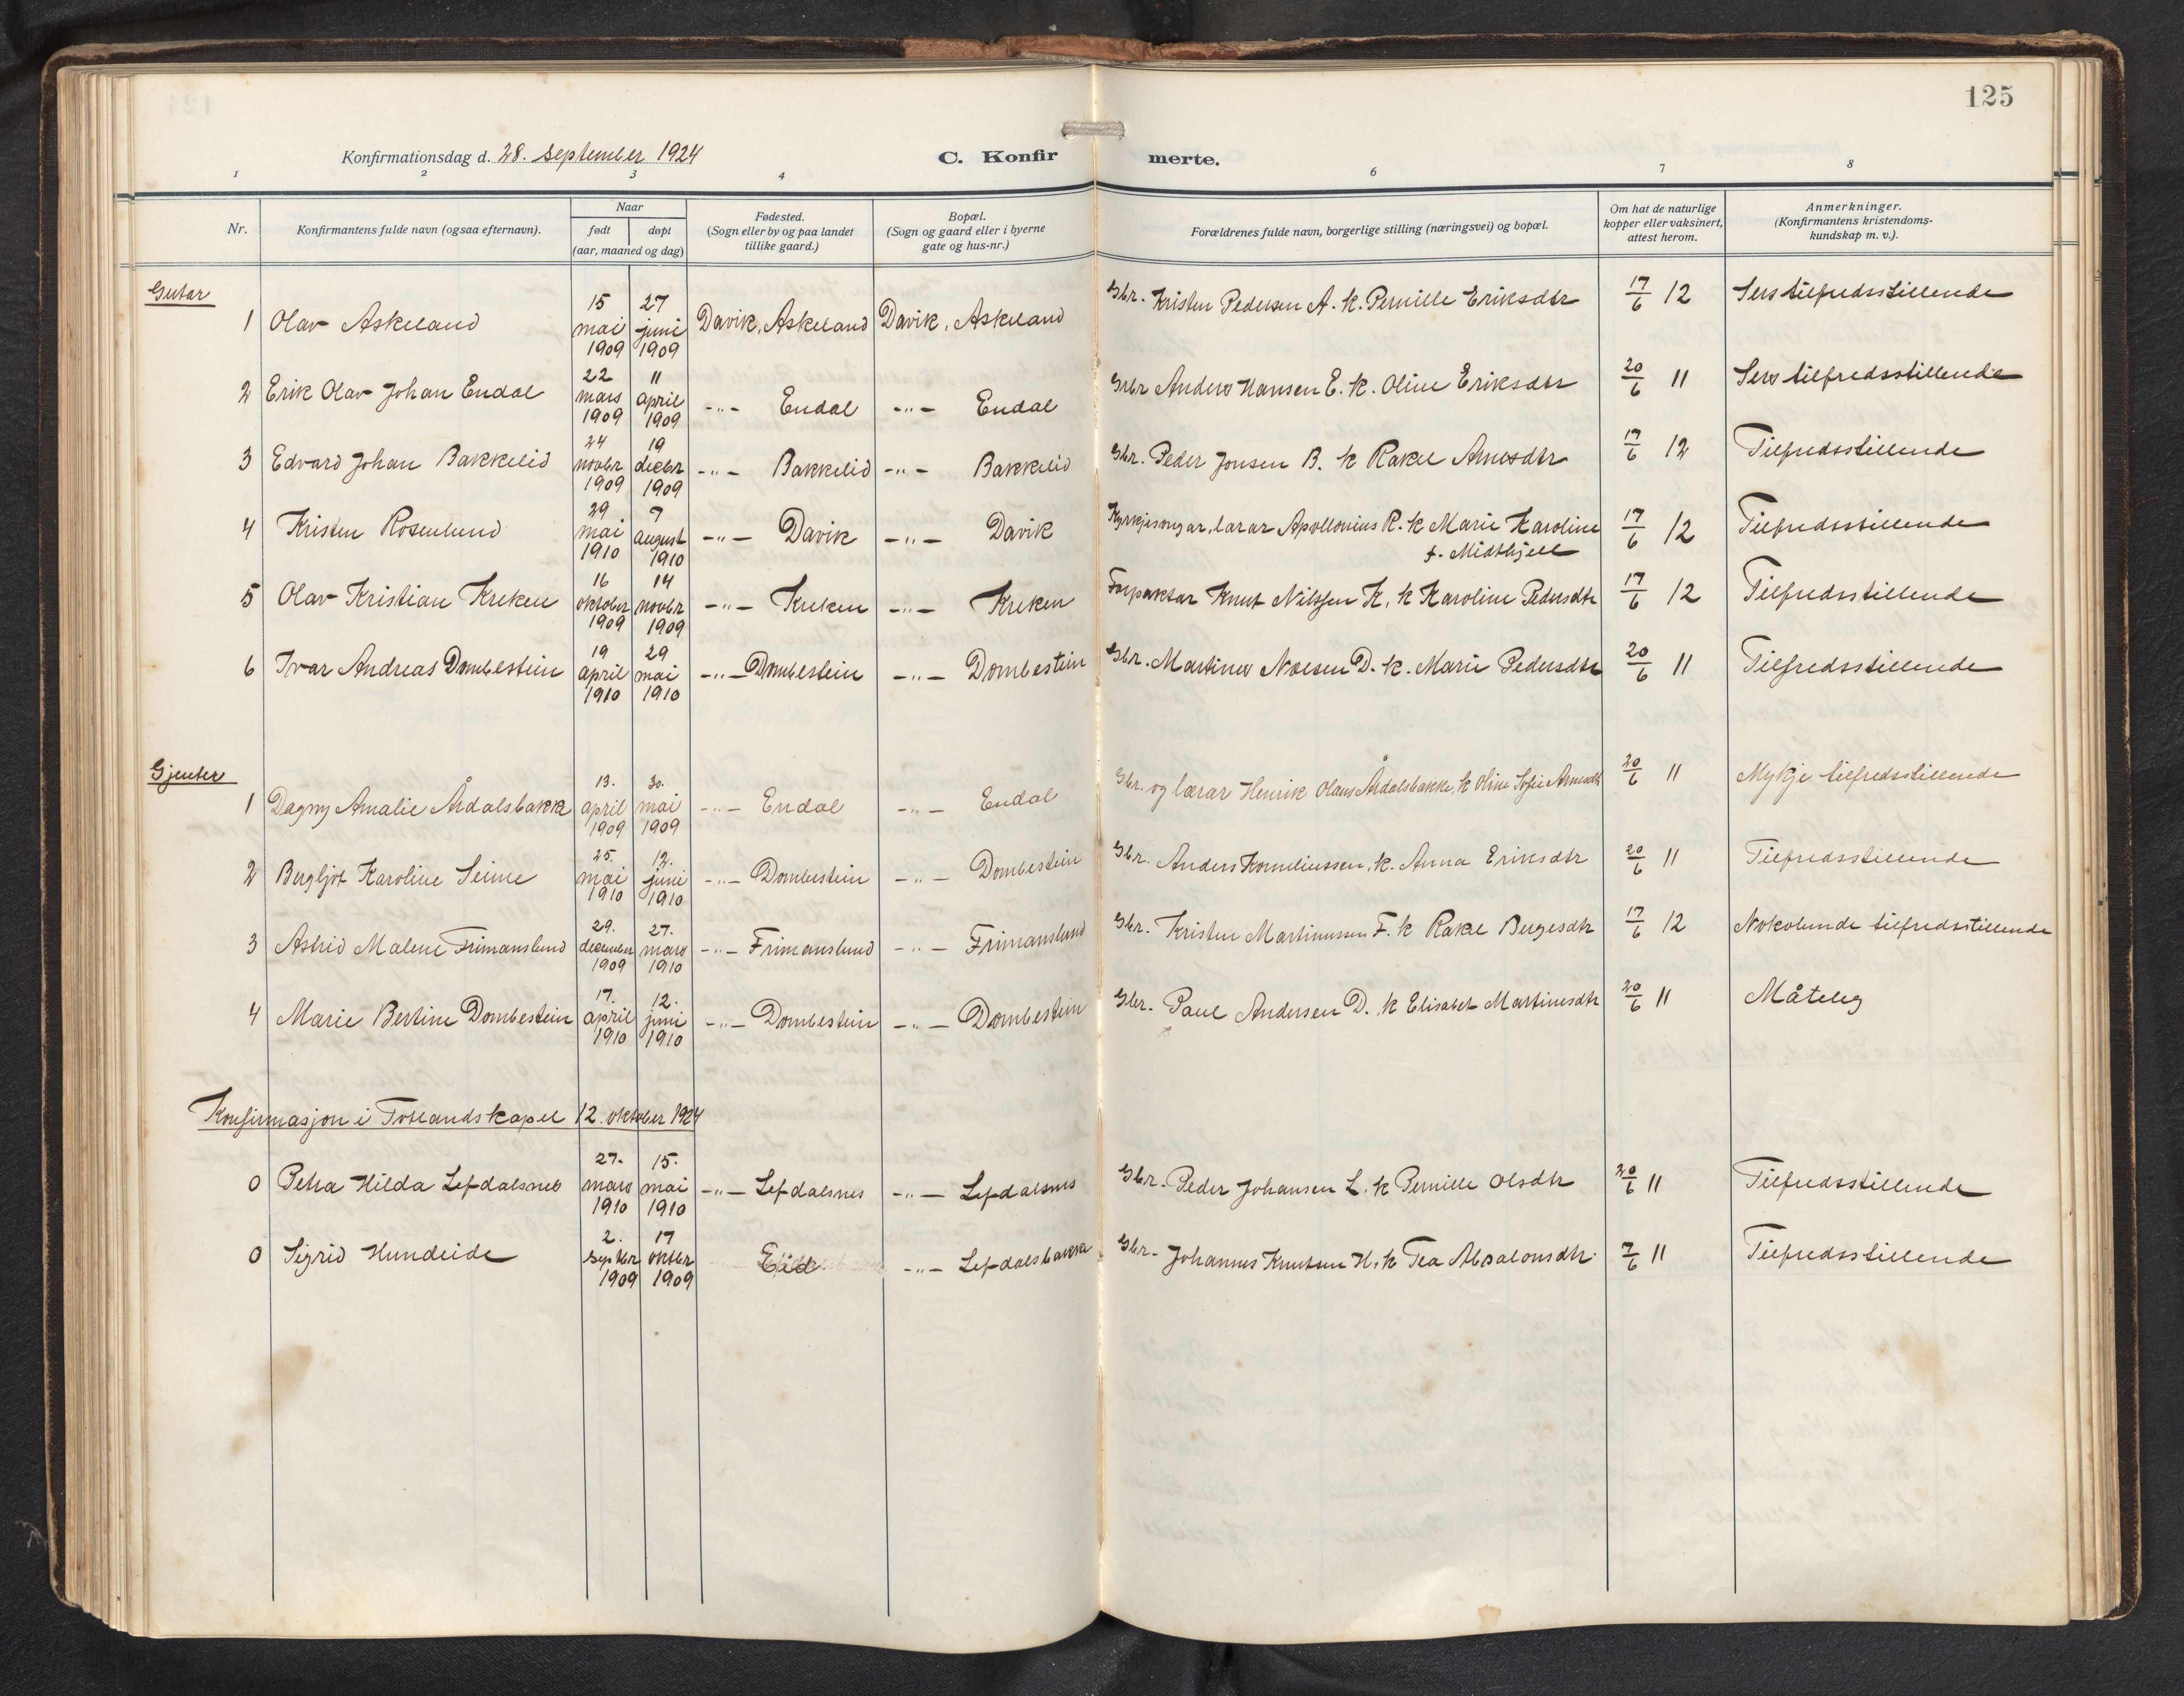 125
Konfirmationsdag d. 28. september 1924
C. Konfir merte.
1 2 3 4 6 7 8
Nr.
Konfirmantens fulde navn (ogsaa efternavn).
Naar
født døpt
(aar, maaned og dag)
Fødested.
(Sogn eller by og paa landet
tillike gaard.)
Bopæl.
(Sogn og gaard eller i byerne
gate og hus-nr.)
Forældrenes fulde navn, borgerlige stilling (næringsvei) og bopæl.
Om hat de naturlige
kopper eller vaksinert,
attest herom.
Anmerkninger.
(Konfirmantens kristendoms-
kundskap m. v.).
Gutar
1 Olav Askeland 15 mai 1909 27 juni 1909 Davik, Askeland Davik, Askeland Gbr. Kristen Pedersen A. k. Pernille Eriksdtr 17/6 12 Sers tilfredsstillende
2 Erik Olav Johan Endal 22 mars 1909 11 april 1909 -"- Endal -"- Endal Gbr Anders Hansen E. k. Oline Eriksdtr 20/6 11 Sers tilfredsstillende
3 Edvard Johan Bakkelid 24 novbr 1909 19 decbr 1909 -"- Bakkelid -"- Bakkelid Gbr. Peder Jonsen B. k Rakel Arnesdtr 17/6 12 Tilfredsstillende
4 Kristen Rosenlund 29 mai 1910 7 august 1910 -"- Davik -"- Davik Kyrkjesongar, lærar Apollonius R. k Marie Karoline
f. Midthjell 17/6 12 Tilfredsstillende
5 Olav Kristian Kreken 16 oktober 1909 14 novbr 1909 -"- Kreken -"- Kreken Forpaktar Knut Nilssen K, k Karoline Pedersdtr 17/6 12 Tilfredsstillende
6 Ivar Andreas Dombestein 19 april 1910 29 mai 1910 -"- Dombestein -"- Dombestein Gbr. Martines Nilsen D. k. Marie Pedersdtr 20/6 11 Tilfredsstillende
Gjenter
1 Dagny Amalie Årdalsbakke 13. april 1909 30. mai 1909 -"- Endal -"- Endal Gbr. og lærar Henrik Olaus Årdalsbakke, k Oline Sofie Arnesdtr 20/6 11 Mykje tilfredsstillende
2 Bergljot Karoline Seime 25. mai 1910 12. juni 1910 -"- Dombestein -"- Dombestein Gbr. Anders Korneliussen, k. Anna Eriksdtr 20/6 11 Tilfredsstillende
3 Astrid Malene Frimanslund 29. december 1909 27. mars 1910 -"- Frimanslund -"- Frimanslund Gbr. Kristen Martinussen F. k Rakel Bergesdtr 17/6 12 Nokolunde tilfredsstillende
4 Marie Bertine Dombestein 17. april 1910 12. juni 1910 -"- Dombestein -"- Dombestein Gbr. Paul Andersen D. k Elisabet Martinesdtr 20/6 11 Måteleg
Konfirmasjon i Totlands kapel 12. oktober 1924
0 Petra Hilda Lefdalsnes 27. mars 1910 15. mai 1910 -"- Lefdalsnes -"- Lefdalsnes Gbr. Peder Johansen L. k Pernille Olsdtr 20/6 11 Tilfredsstillende
0 Sigrid Hundeide 2. septbr 1909 17 oktbr 1909 Eid -"- Lefdalsbakke Gbr. Johannes Knutsen H. k Tea Absalonsdtr. 7/6 11 Tilfredsstillende